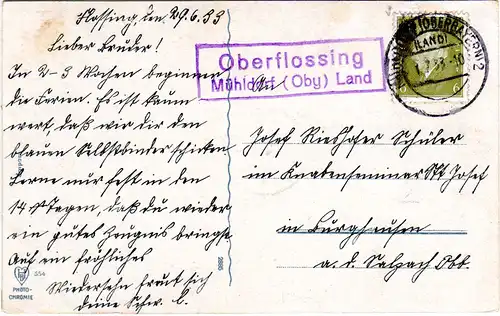 Flossing, den 29.6.33
Lieber Bruder!
In 2-3 Wochen beginnen
die Ferien. Es ist kaum
wert, daß wir dir den
blauen Selbstbinder schicken.
Lerne nur fest in den
14 Tagen, daß du wieder
ein gutes Zeugnis bringst.
Auf ein fröhliches
Wiedersehn freut sich
deine Schw. L.
Oberflossing
Mühldorf (Oby) Land
An
(OBERBAYERN) 2
(LAND)
6
Josef Schüler
im Knabenseminar St. Josef
in Burghausen
a. d. Salzach Obb.
554
PHOTO-
CHROMIE